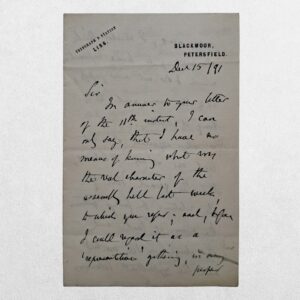 TELEGRAPH & STATION
LISS.
BLACKMOOR,
PETERSFIELD.
Dec 15/91
Sir
In answer to your letter
of the 14th instant, I can
only say, that I have no
means of knowing what was
the real character of the
assembly held last week,
to which you refer; and, before
I could regard it as a
'representative' gathering, in any
proper